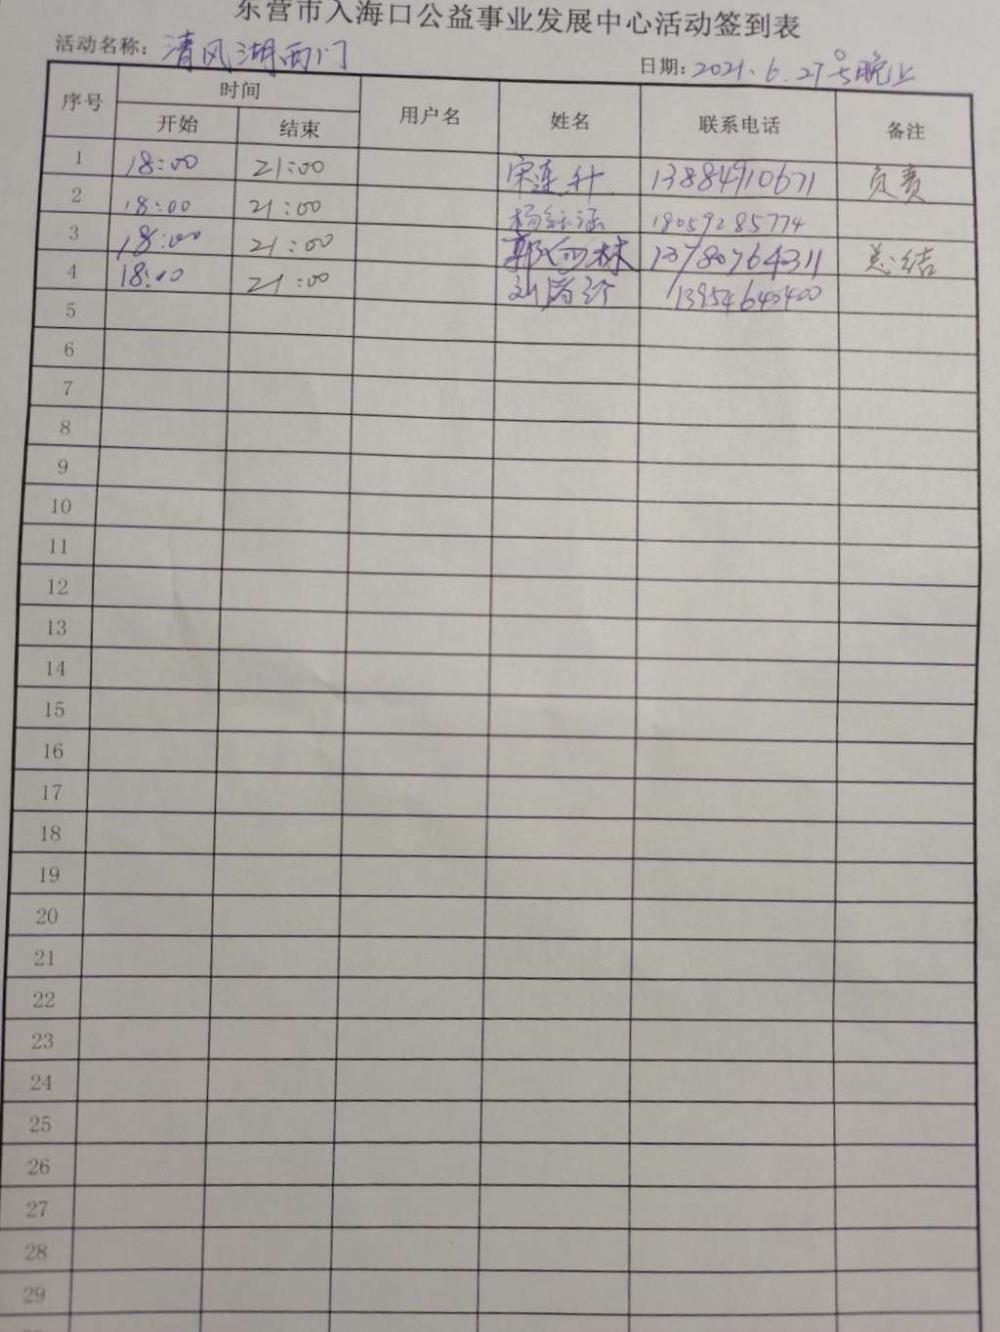 东营市入海口公益事业发展中心活动签到表
活动名称：清风湖西门 日期：2021.6.27号晚上
序号 时间 用户名 姓名 联系电话 备注
开始 结束
1 18:00 21:00 宋连升 13884910671 负责
2 18:00 21:00 18059285774
3 18:00 21:00 13780764311 总结
4 18:00 21:00 13954640400
5
6
7
8
9
10
11
12
13
14
15
16
17
18
19
20
21
22
23
24
25
26
27
28
29